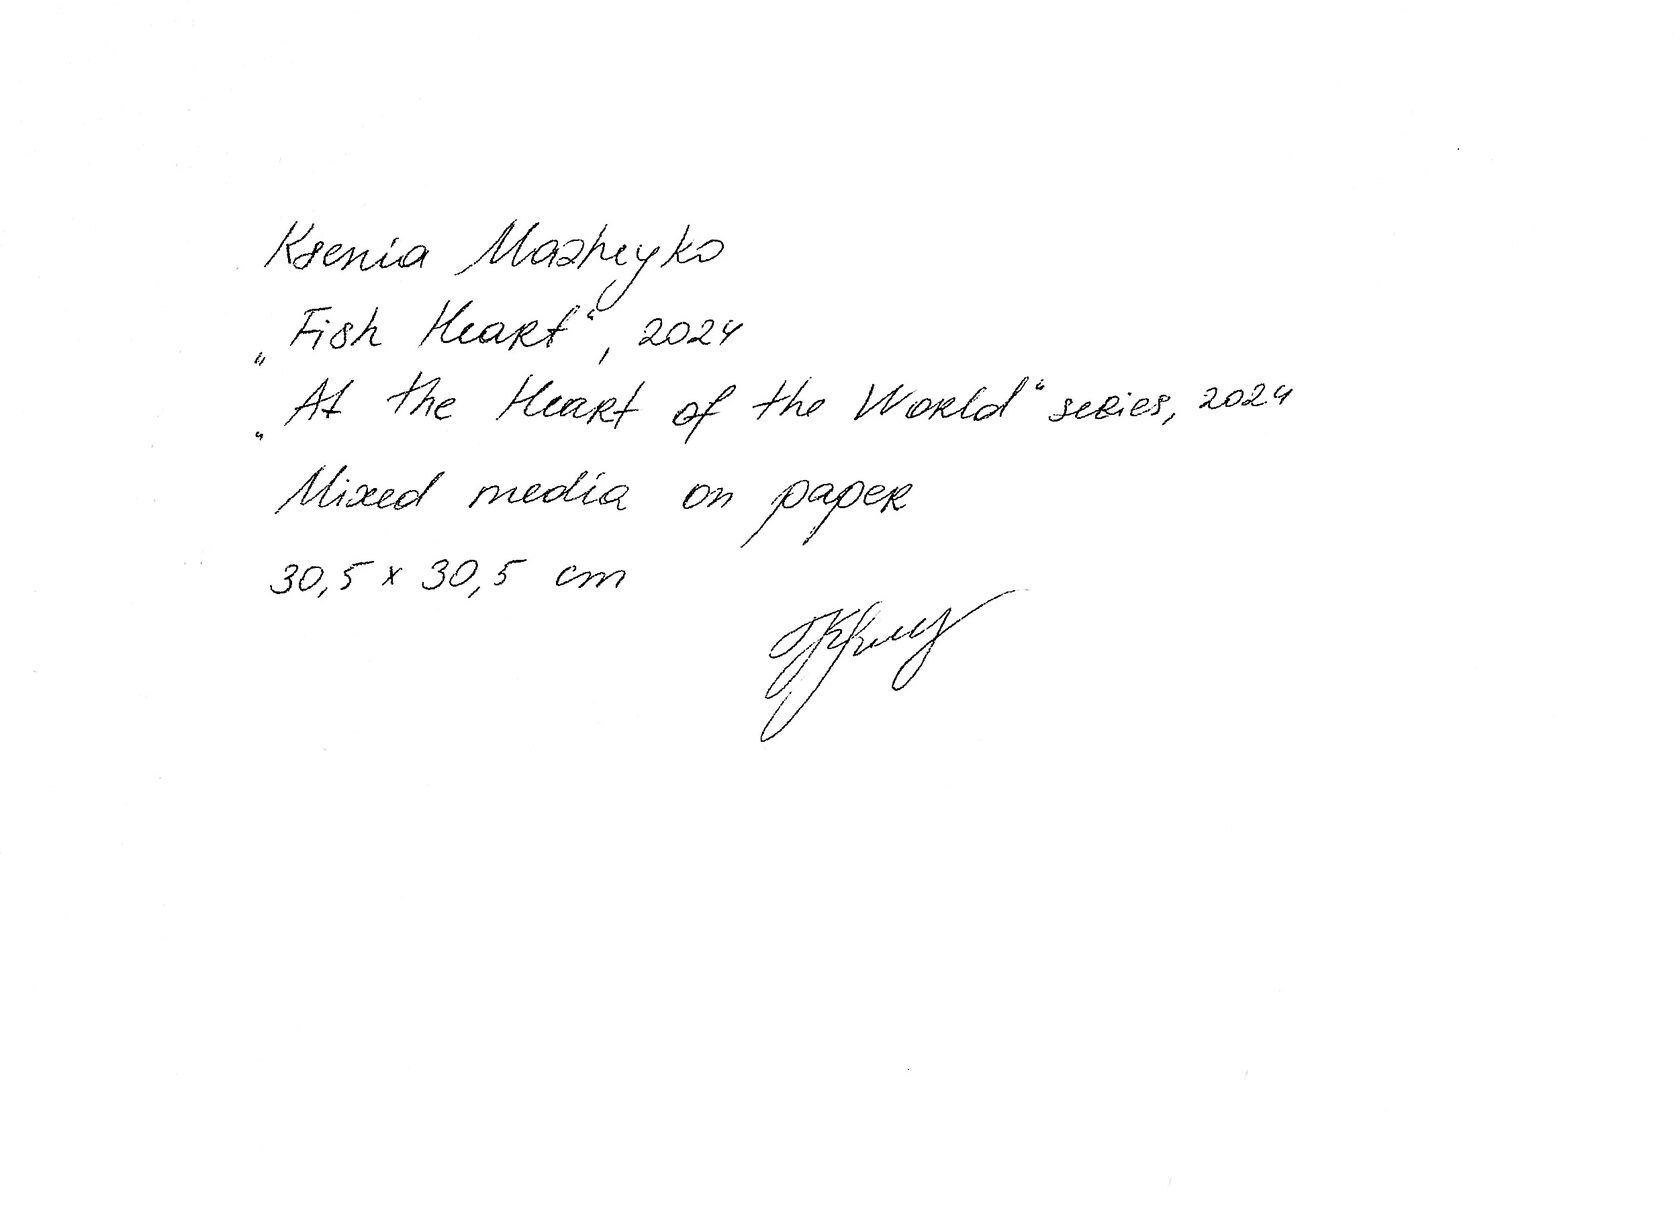 Ksenia Mazheyko
„Fish Heart“, 2024
„At the Heart of the World“ series, 2024
Mixed media on paper
30,5 x 30,5 cm